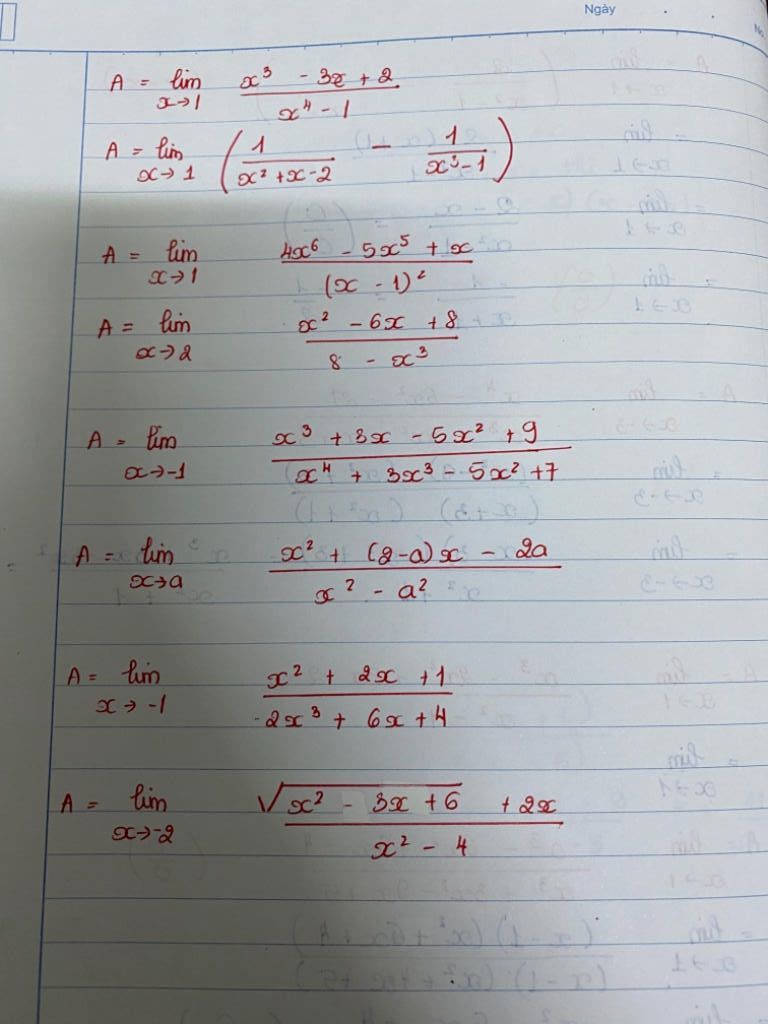 Ngày
No.
A = lim x→1 (x³ - 3x + 2)/(x⁴ - 1)
A = lim x→1 (1/(x² + x - 2) - 1/(x³ - 1))
A = lim x→1 (4x⁶ - 5x⁵ + x)/(x - 1)²
A = lim x→2 (x² - 6x + 8)/(8 - x³)
A = lim x→-1 (x³ + 3x - 5x² + 9)/(x⁴ + 3x³ - 5x² + 7)
A = lim x→a (x² + (2-a)x - 2a)/(x² - a²)
A = lim x→-1 (x² + 2x + 1)/(2x³ + 6x + 4)
A = lim x→-2 (√(x² - 3x + 6) + 2x)/(x² - 4)